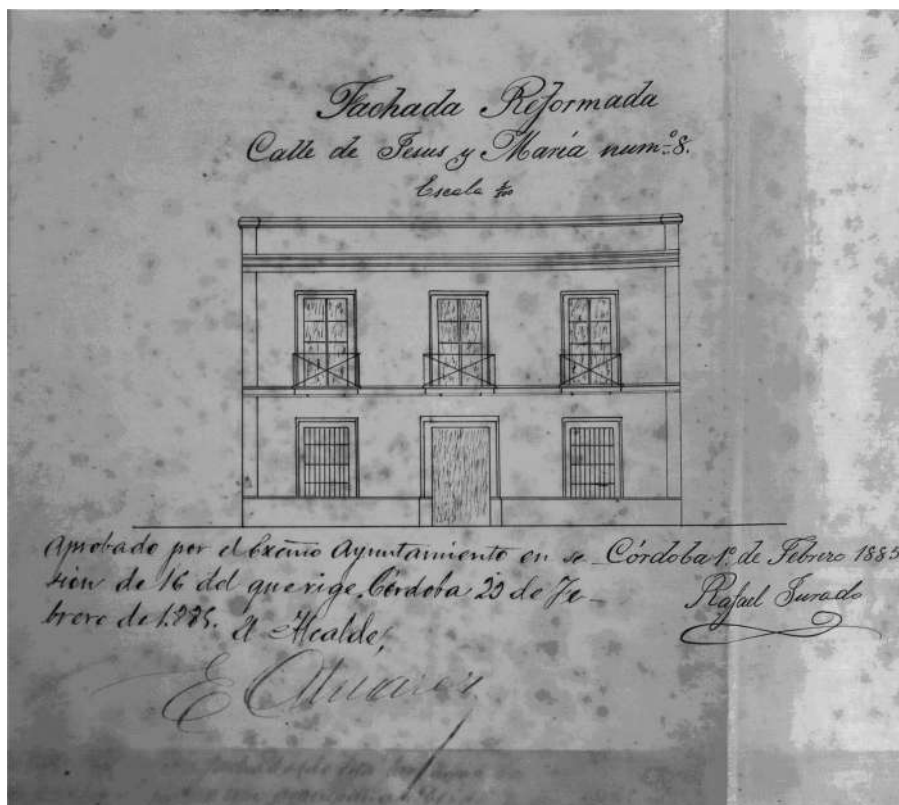 Fachada Reformada
Calle de Jesus y María num.º 8.
Escala 1/100
Aprobado por el Excmo Ayuntamiento en se
sion de 16 del que rige. Córdoba 23 de Fe-
brero de 1885.
El Alcalde,
E Alvarez
Córdoba 1º. de Febrero 1885
Rafael Jurado